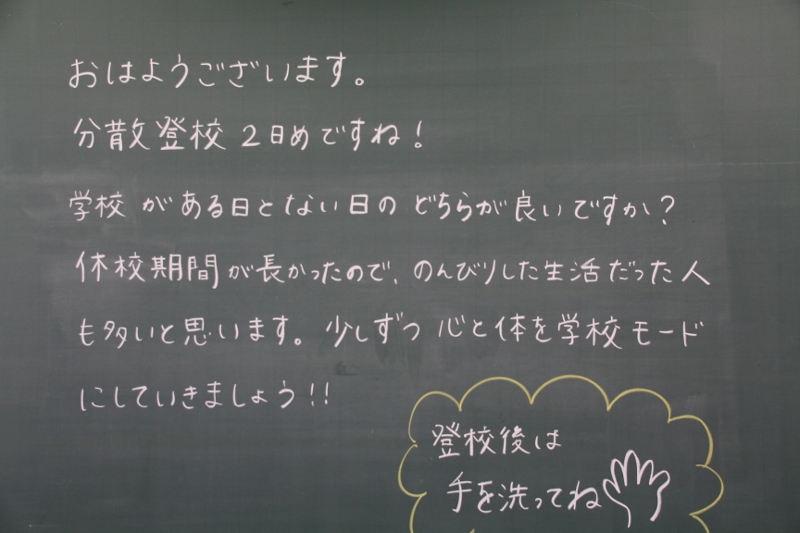 おはようございます。
分散登校2日めですね!
学校がある日とない日のどちらが良いですか?
休校期間が長かったので、のんびりした生活だった人
も多いと思います。少しずつ心と体を学校モード
にしていきましょう!!
登校後は
手を洗ってね